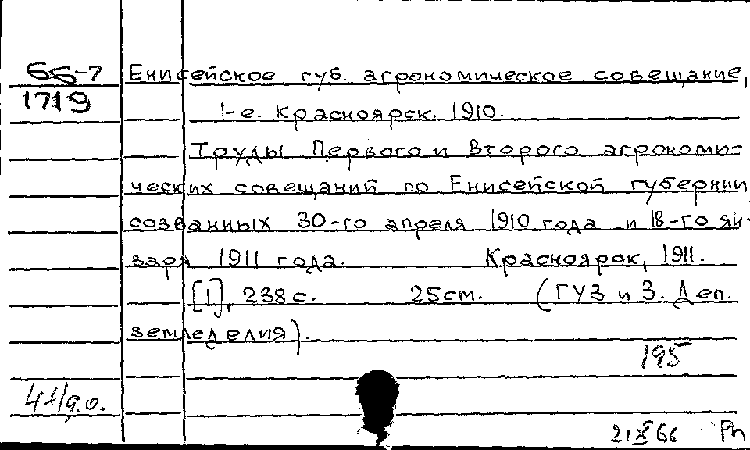 66-7 Енисейское губ. агрономическое совещание,
1719 1-е. Красноярск. 1910.
Труды Первого и Второго агрономи-
ческих совещаний по Енисейской губернии,
созванных 30-го апреля 1910 года и 18-го ян-
варя 1911 года. Красноярск, 1911.
[1], 238 с. 25см. (ГУЗ и З. Деп.
земледелия).
195
21 X 66